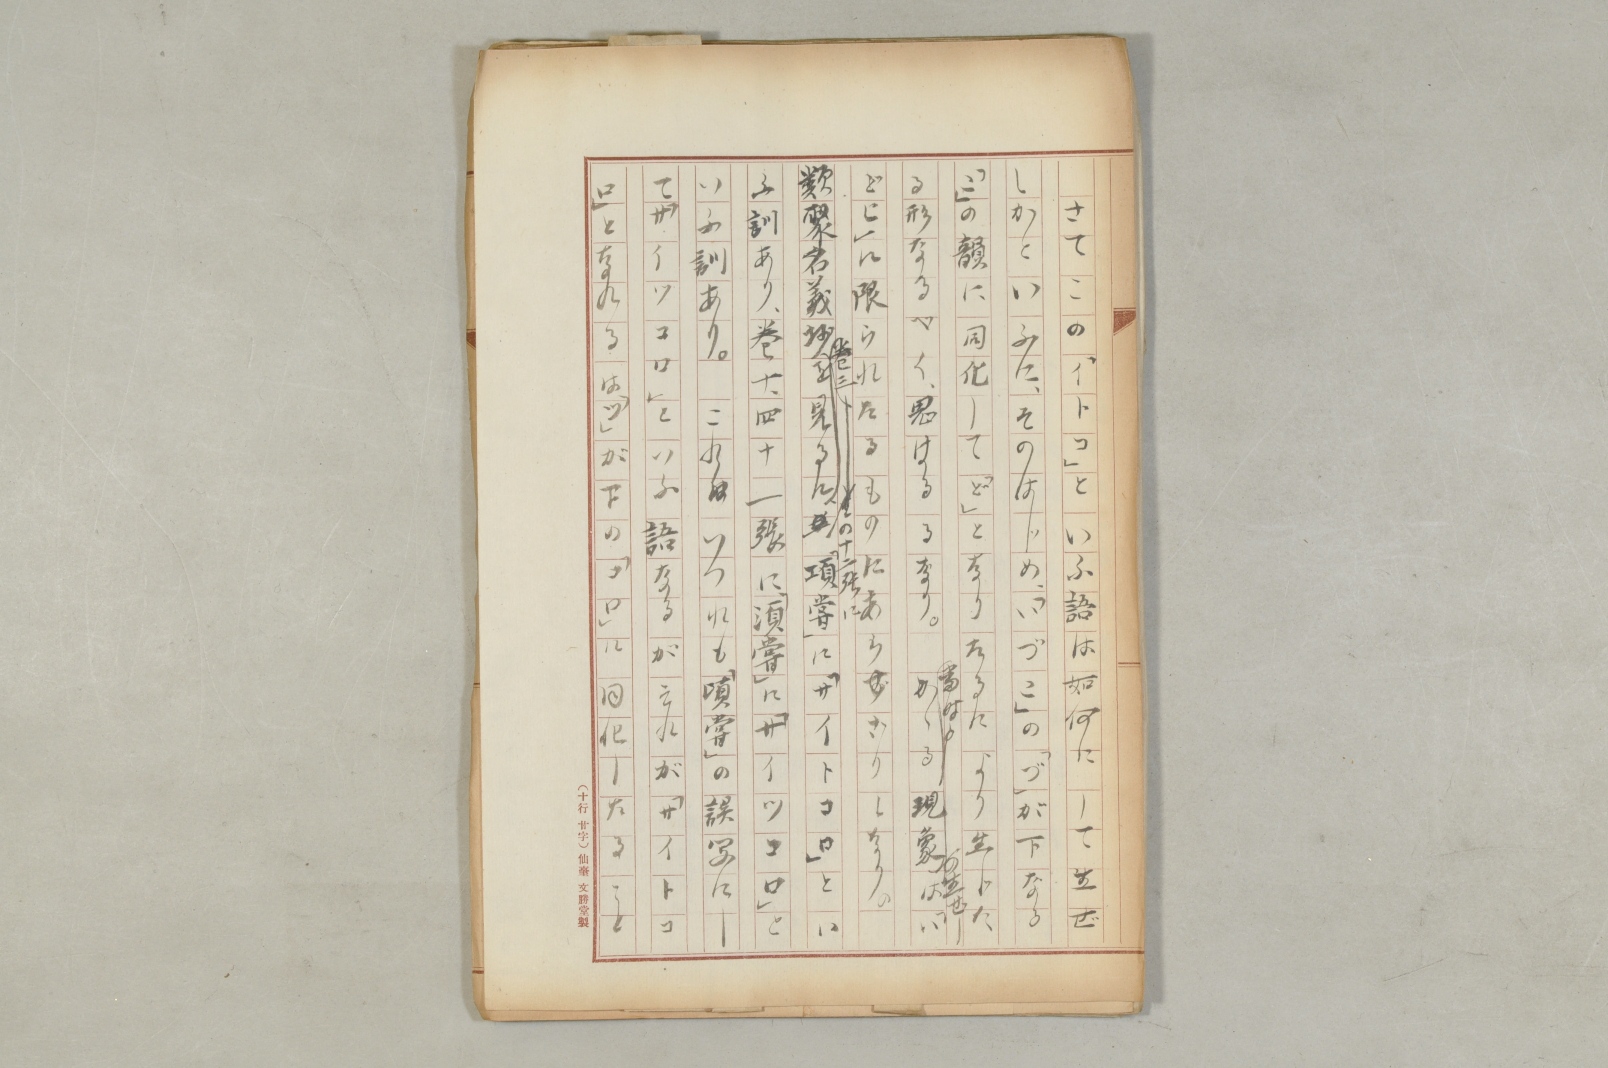 さてこの「イトコ」といふ語は如何にして生ぜ
しかといふに、そのはじめ、「いづこ」の「づ」が下なる
「こ」の韻に同化して「ど」となりたるにより生じた
る形なるべく、思はるるなり。かゝる現象は「い
どこ」に限られたるものにあらざりしなり。
類聚名義抄を見るに 項嘗」に「サイトコロ」とい
巻三
の十二張に
ふ訓あり、巻十、四十一張に、「湏嘗」に「サイツコロ」と
いふ訓あり。これはいづれも「頃嘗」の誤写にし
て「サイツコロ」といふ語なるがそれが「サイトコ
ロ」となれるは「ツ」が下の「コロ」に同化したること
(十行 廿字) 仙臺 文勝堂製